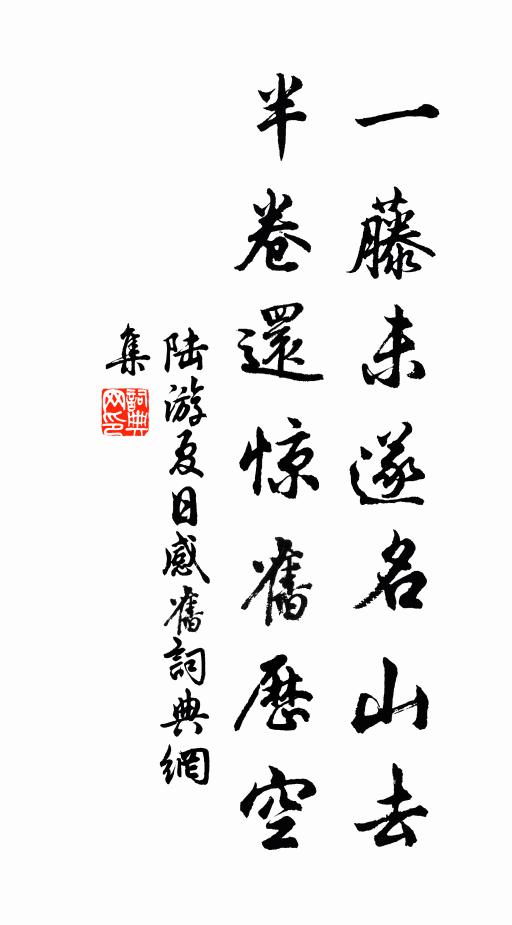 一藤未遂名山去
半卷還惊舊歷空
陆游夏日感舊詞典網
集
詞典
网印